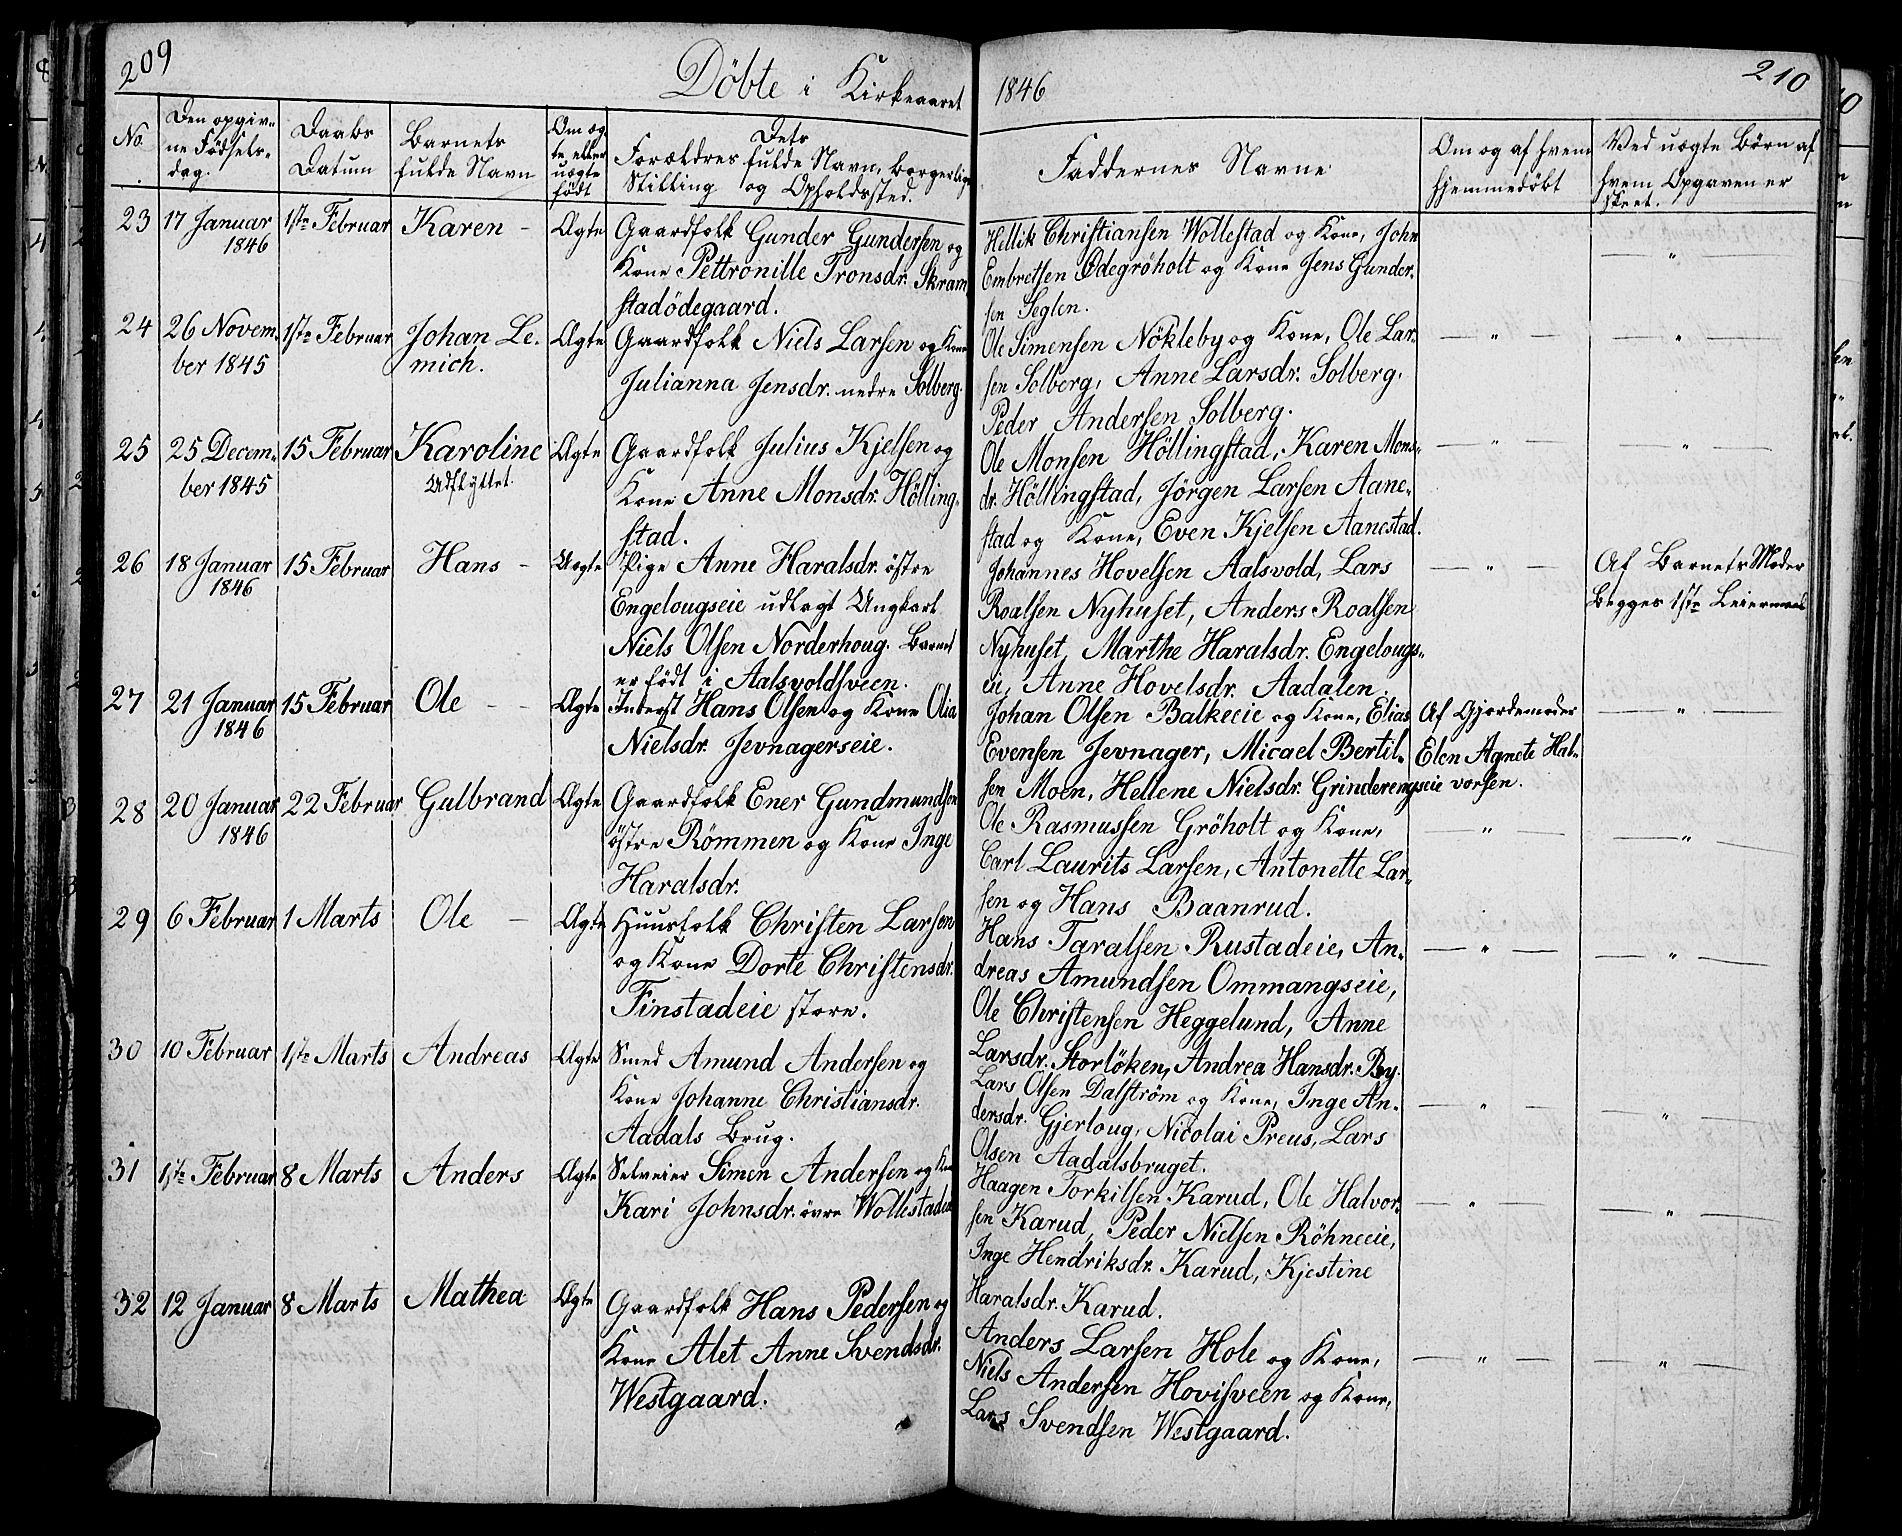 209
Döbte i Kirkeaaret
1846
210
No.
Den opgiv-
ne Födsels-
dag.
Daabs
Datum
Barnets
fulde Navn
Om æg-
te eller
uægte
födt
Dets
Forældres fulde Navn, borgerlige
Stilling og Opholdssted.
Faddernes Navne
Om og af hvem
hjemmedöbt
Ved uægte Börn af
hvem Opgaven er
skeet.
23 17 Januar 1ste Februar Karen - Ægte Gaardfolk Gunder Gundersen og
1846 Kone Pettronille Tronsdr. Skram
stadödegaard.
Hellik Christiansen Wollestad og Kone, John
Embretsen Ödegröholt og Kone Jens Gunder-
sen Seglen.
— " —
24 26 Novem- 1ste Februar Johan Le- Ægte Gaardfolk Niels Larsen og Kone
ber 1845 mich. Julianna Jensdr. nedre Solberg.
Ole Simensen Nökleby og Kone, Ole Lar-
sen Solberg, Anne Larsdr. Solberg.
Peder Andersen Solberg.
— " — — " —
25 25 Decem- 15 Februar Karoline Ægte Gaardfolk Julius Kjelsen og
ber 1845 Udflyttet. Kone Anne Monsdr. Hölling-
stad.
Ole Monsen Höllingstad, Karen Mons-
dr. Höllingstad, Jörgen Larsen Aane-
stad og Kone, Even Kjelsen Aanestad.
— " — — " —
26 18 Januar 15 Februar Hans - Uægte Pige Anne Haralsdr. östre
1846 Engelougseie udlagt Ungkarl
Niels Olsen Norderhoug. Barnet
er födt i Aalsvoldsveen.
Johannes Hovelsen Aalsvold, Lars
Roalsen Nyhuset, Anders Roalsen
Nyhuset, Marthe Haralsdr. Engelougs-
eie, Anne Hovelsdr. Aadalen.
— " — Af Barnets Moder
Begges 1ste Leiermaal
27 21 Januar 15 Februar Ole - - Ægte Inderst Hans Olsen og Kone Olia
1846 Nielsdr. Jevnagerseie.
Johan Olsen Balkeeie og Kone, Elias
Evensen Jevnager, Micael Bertil-
sen Moen, Hellene Nielsdr. Grinderengseie
Af Gjordemoder
Elen Agnete Hal-
vorsen.
— " —
28 20 Januar 22 Februar Gulbrand Ægte Gaardfolk Ener Gundmundsen
1846 östre Römmen og Kone Inge
Haralsdr.
Ole Rasmussen Gröholt og Kone,
Carl Laurits Larsen, Antonette Lar-
sen og Hans Baanrud.
— " — — " —
29 6 Februar 1 Marts Ole - Ægte Huusfolk Christen Larsen
og Kone Dorte Christensdr.
Finstadeie store.
Hans Taralsen Rustadeie, An-
dreas Amundsen Ommangseie,
Ole Christensen Heggelund, Anne
Larsdr. Storlöken, Andrea Hansdr. By.
— " — — " —
30 10 Februar 1ste Marts Andreas Ægte Smed Amund Andersen og
Kone Johanne Christiansdr.
Aadals Brug.
Lars Olsen Dalström og Kone, Inge An-
dersdr. Gjerloug, Nicolai Preus, Lars
Olsen Aadalsbruget.
— " — — " —
31 1ste Februar 8 Marts Anders Ægte Selveier Simen Andersen og Kone
Kari Johnsdr. övre Wollestadeie
Haagen Torkilsen Karud, Ole Halvor-
sen Karud, Peder Nielsen Röhneeie,
Inge Hendriksdr. Karud, Kjestine
Haralsdr. Karud.
— " — — " —
32 12 Januar 8 Marts Mathea Ægte Gaardfolk Hans Pedersen og
Kone Alet Anne Svendsdr.
Westgaard.
Anders Larsen Hole og Kone,
Niels Andersen Hovisveen og Kone,
Lars Svendsen Westgaard.
— " — — " —